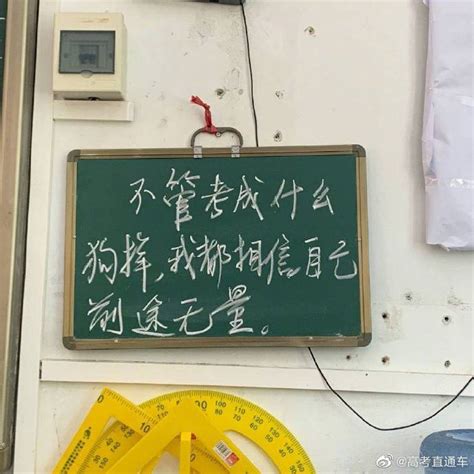 不管考成什么
狗样,我都相信自己
前途无量。
@高考直通车